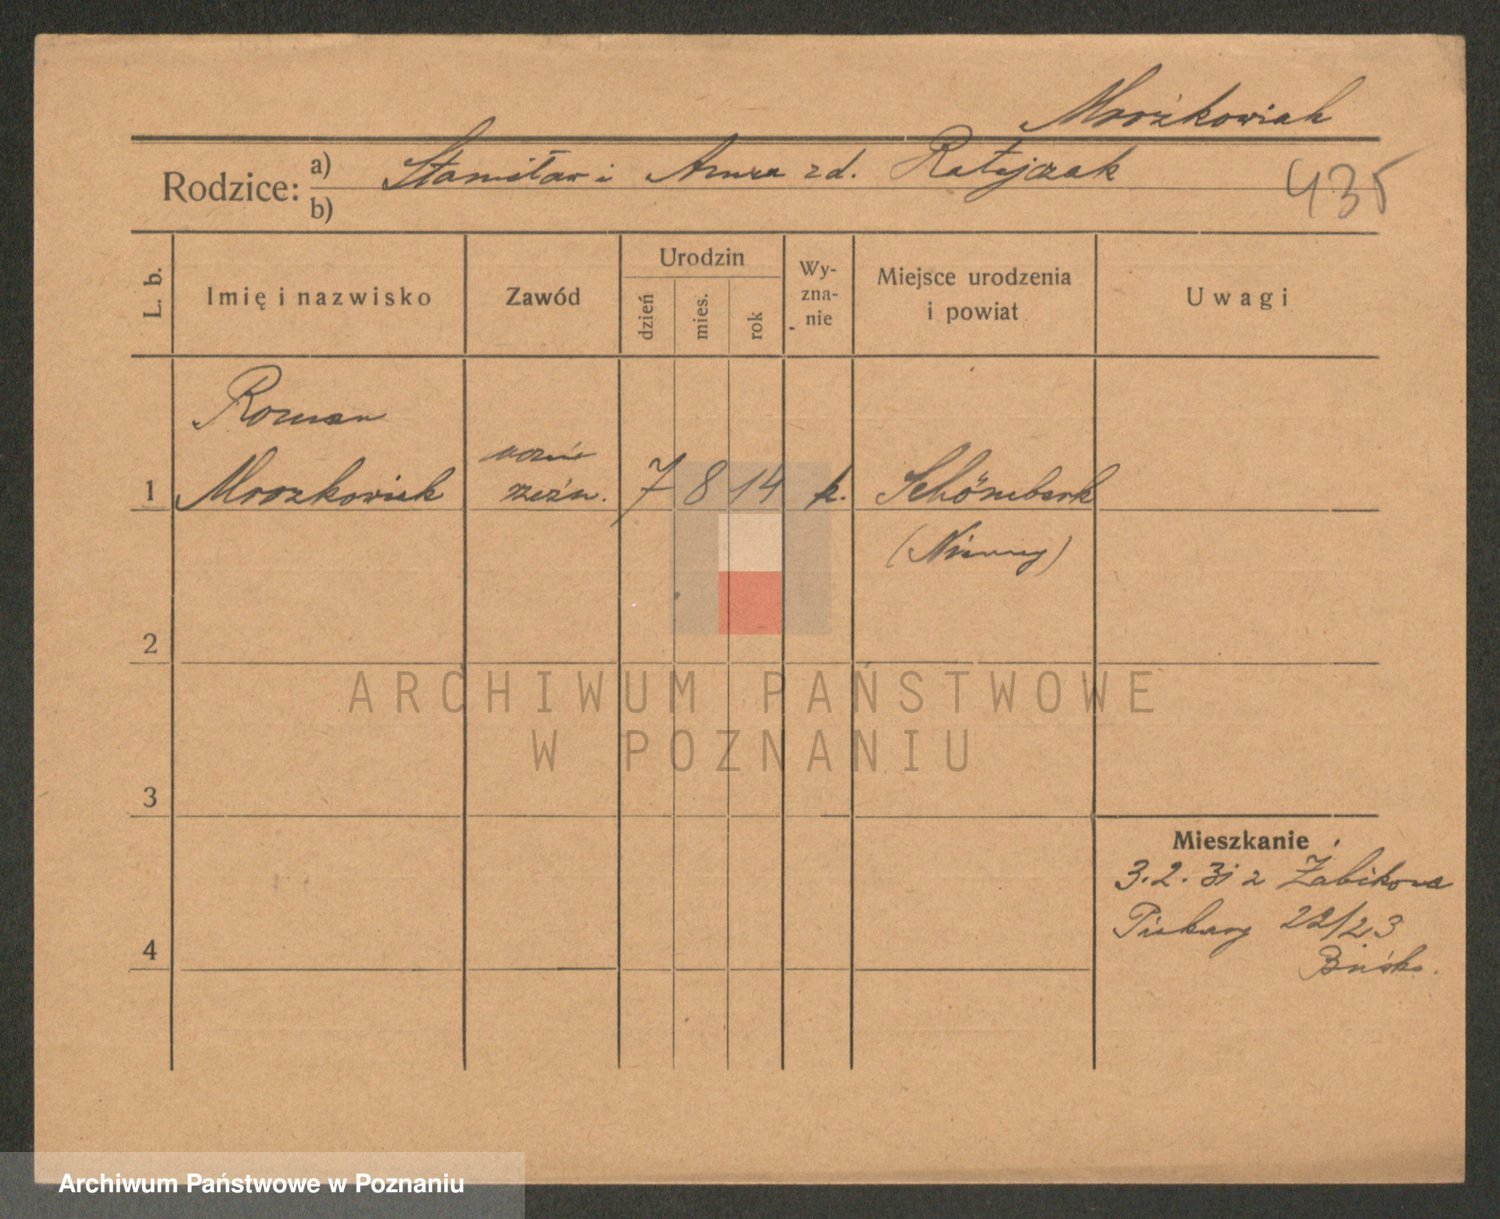 Mrozkowiak
Rodzice: a) Stanisław i Anna zd. Ratajczak
b)
435
L. b.
Imię i nazwisko
Zawód
Urodzin
dzień
mies.
rok
Wy-
zna-
nie
Miejsce urodzenia
i powiat
Uwagi
Roman
1 Mrozkowiak
uczeń
rzeźn.
7 8 14 k. Schönebeck
(Niemcy)
2
3
4
Mieszkanie
3.2.31 z Żabikowa
Piekary 22/23
ARCHIWUM PAŃSTWOWE
W POZNANIU
Archiwum Państwowe w Poznaniu